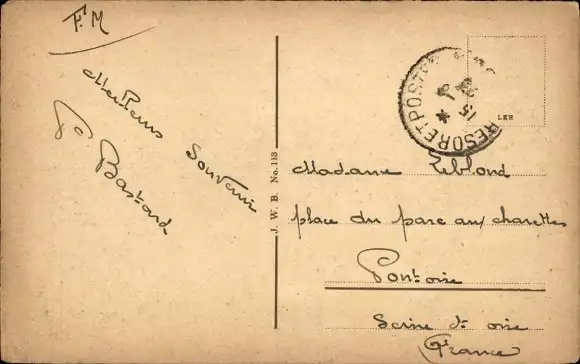 F.M
Meilleurs Souvenir
P. Bastard
J. W. B. No. 113
TRESOR ET POSTES
15
LEH
Madame Leblond
place du parc aux charettes
Pontoise
Seine et oise
France